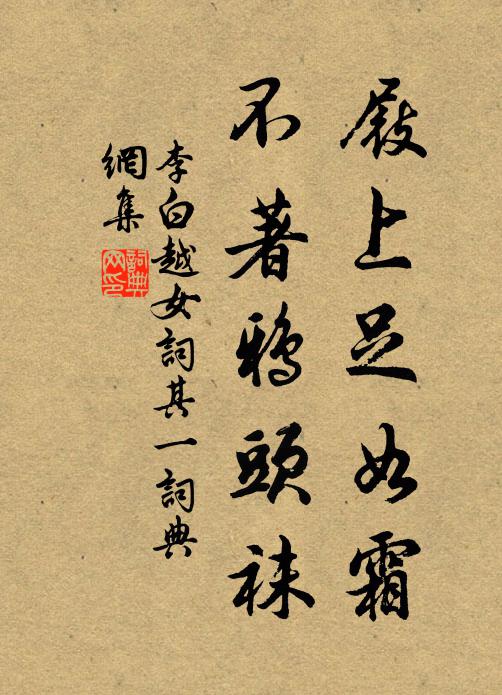 屐上足如霜
不著鴉頭襪
李白越女詞其一詞典
網集
詞典網印